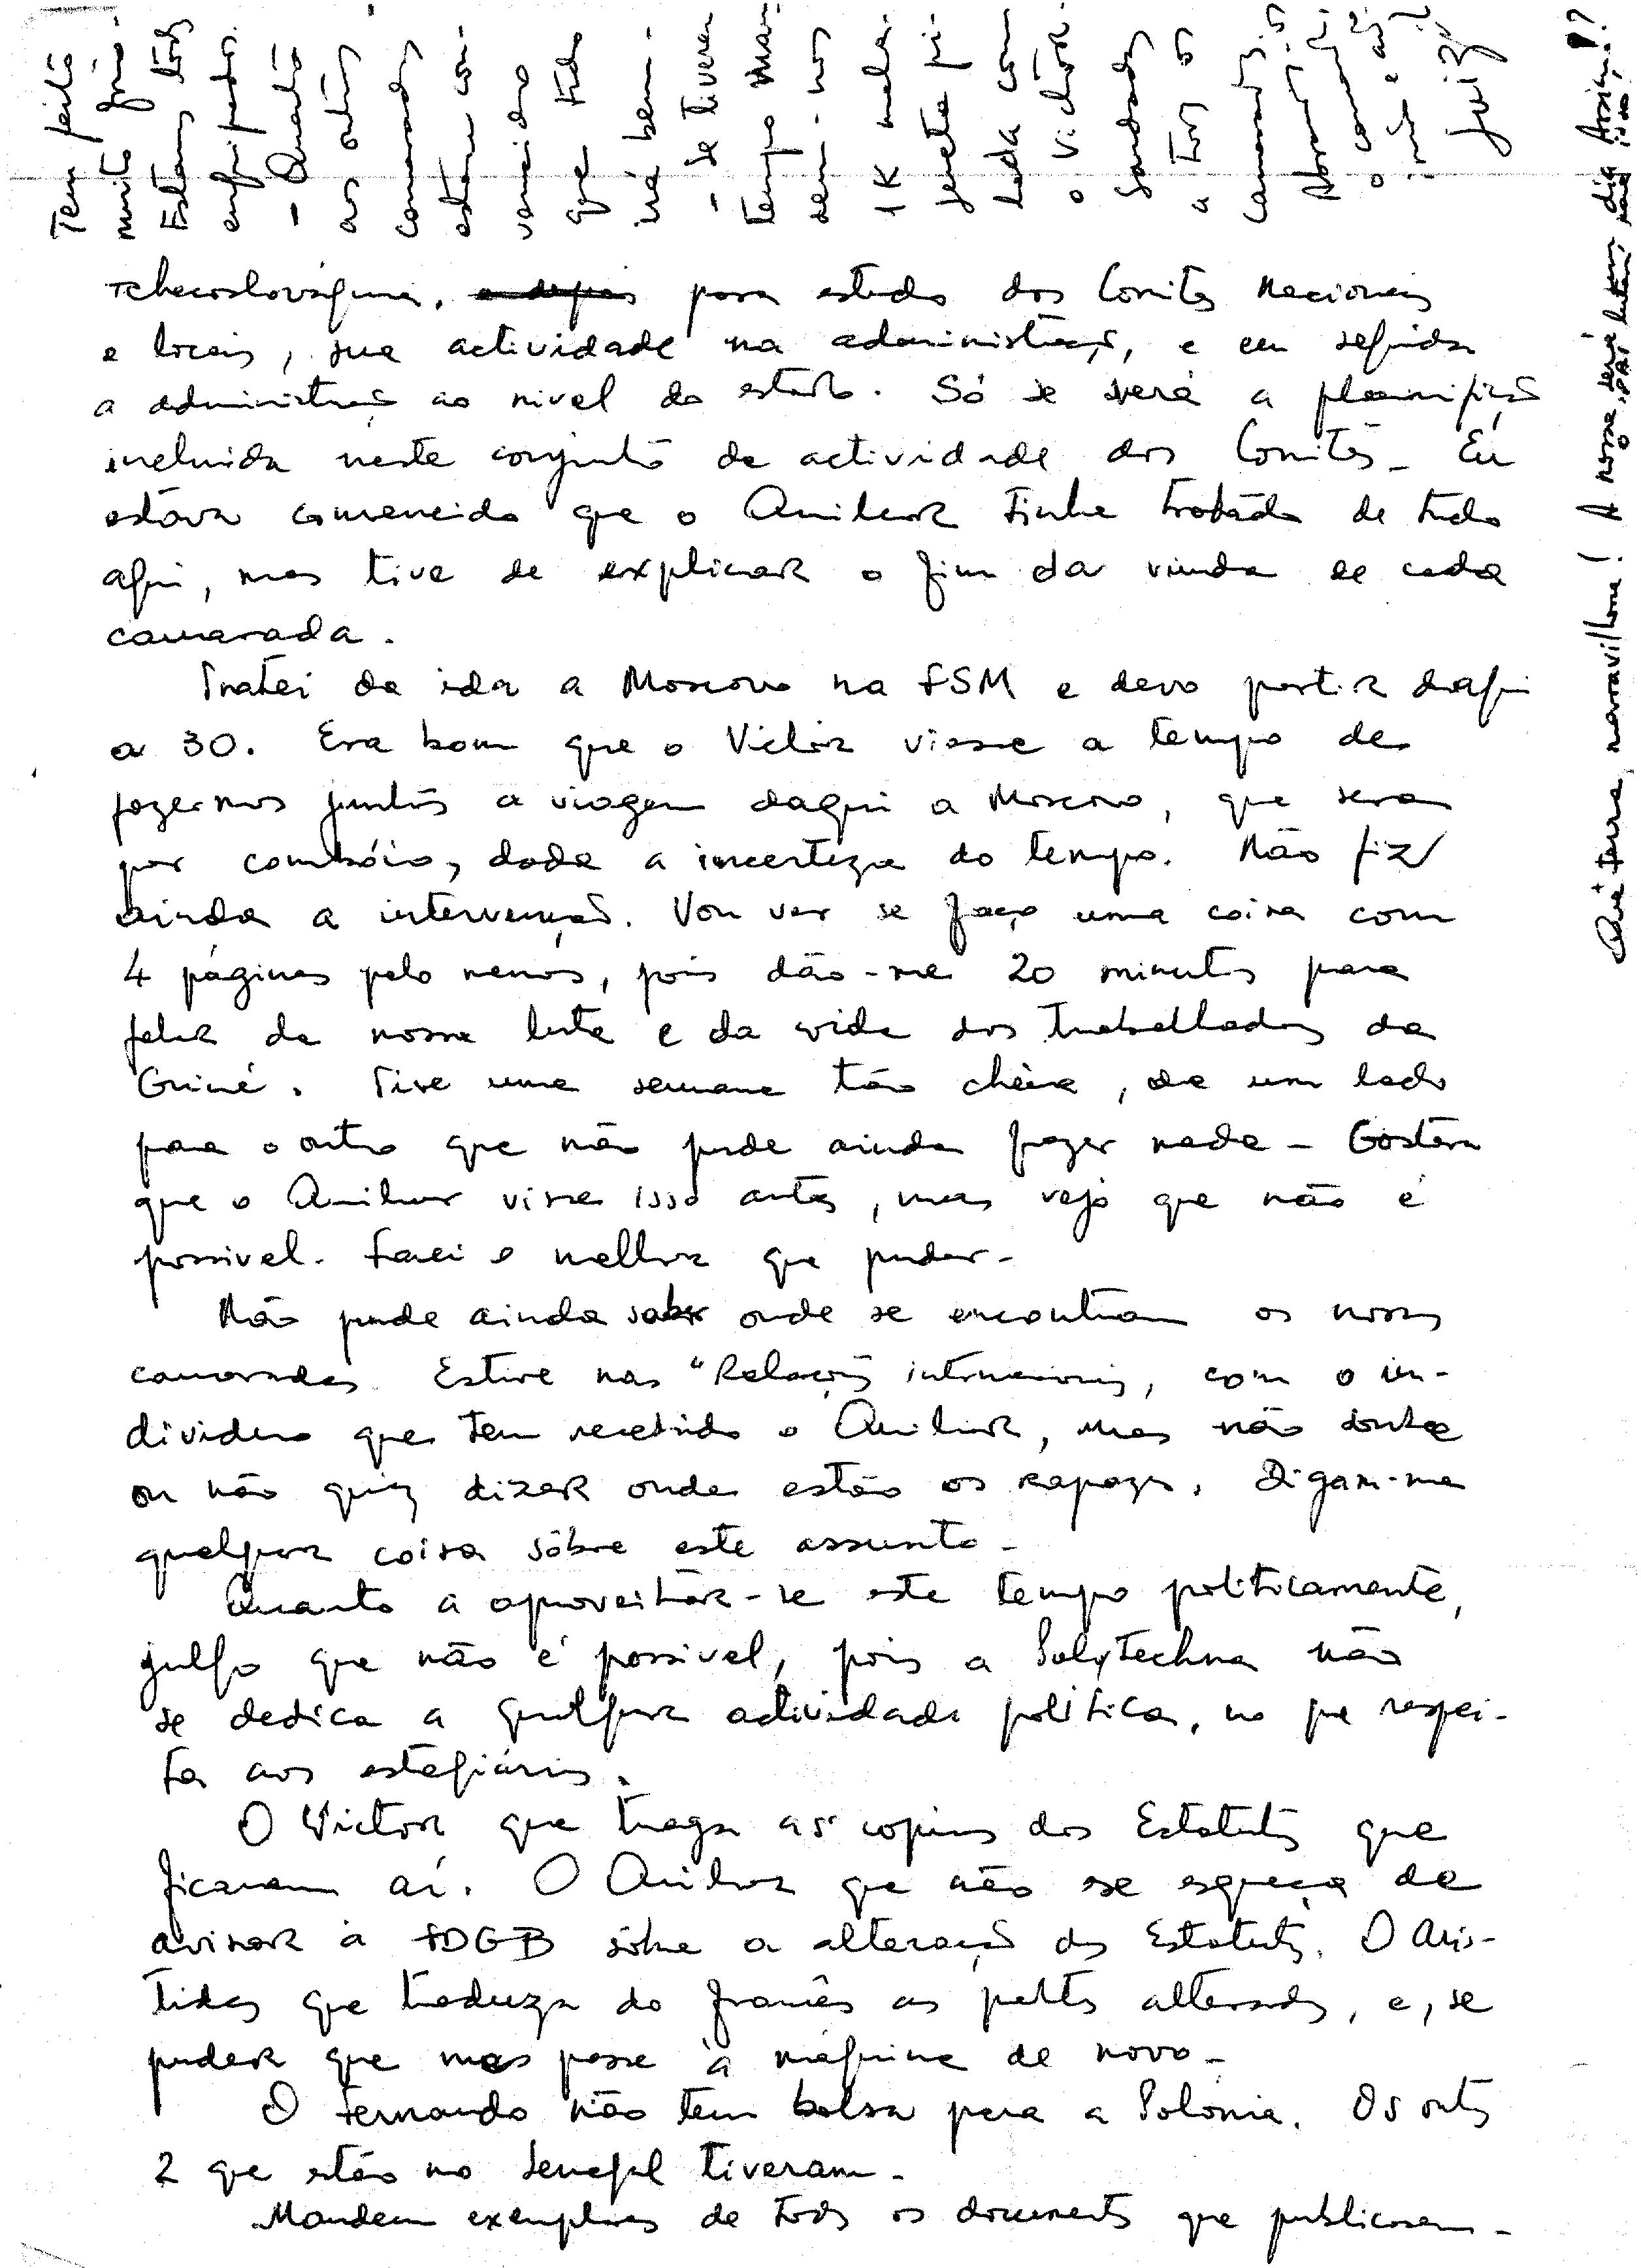 Tchecoslováquia, para estudo dos Comités Nacionais
e locais, sua actividade na administração, e em seguida
a administração ao nivel do estado. Só se será a planificação
incluida neste conjunto de actividade dos Comités_ Eu
estava convencido que o Amilcar tinha tratado de tudo
aqui, mas tive de explicar o fim da vinda de cada
camarada.
Tratei da ida a Moscovo na FSM e devo partir daqui
a 30. Era bom que o Victor viesse a tempo de
fazermos juntos a viagem daqui a Moscovo, que será
por combóio, dada a incerteza do tempo. Não fiz
ainda a intervenção. Vou ver se faço uma coisa com
4 páginas pelo menos, pois dão-me 20 minutos para
falar da nossa luta e da vida dos trabalhadores da
Guiné. Tive uma semana tão cheia, de um lado
para o outro que não pude ainda fazer nada_ Gostava
que o Amilcar visse isso antes, mas vejo que não é
possivel. Farei o melhor que puder_
Não pude ainda saber onde se encontram os nossos
camaradas. Estive nas "Relações internacionais, com o in-
dividuo que tem recebido o Amilcar, mas não soube
ou não quiz dizer onde estão os rapazes. Digam-me
qualquer coisa sôbre este assunto_
Quanto a aproveitar-se este tempo politicamente,
julgo que não é possivel, pois a Polytechna não
se dedica a qualquer actividade politica, no que respei-
ta aos estagiários.
O Victor que traga as copias dos Estatutos que
ficaram aí. O Amilcar que não se esqueça de
avisar à FDGB sôbre a alteração dos Estatutos. O Aris-
tides que traduza do francês as partes alteradas, e, se
puder que mas passe à máquina de novo_
O Fernando não tem bolsa para a Polónia. Os outros
2 que estão no Senegal tiveram_
Mandem exemplares de todos os documentos que publicarem_
Tem feito
muito frio.
Estamos todos
engripados.
- Quanto
aos outros
camaradas
estou con-
vencido
que tudo
irá bem.
- Se tiverem
tempo man-
dem-nos
1 K mala-
gueta pi-
lada com
o Victor.
Saudades
a todos os
camaradas
Abraça-vos
o camarada
irmão e amigo
Luiz
Que terra maravilhosa! A nossa será tambem um dia Assim!?